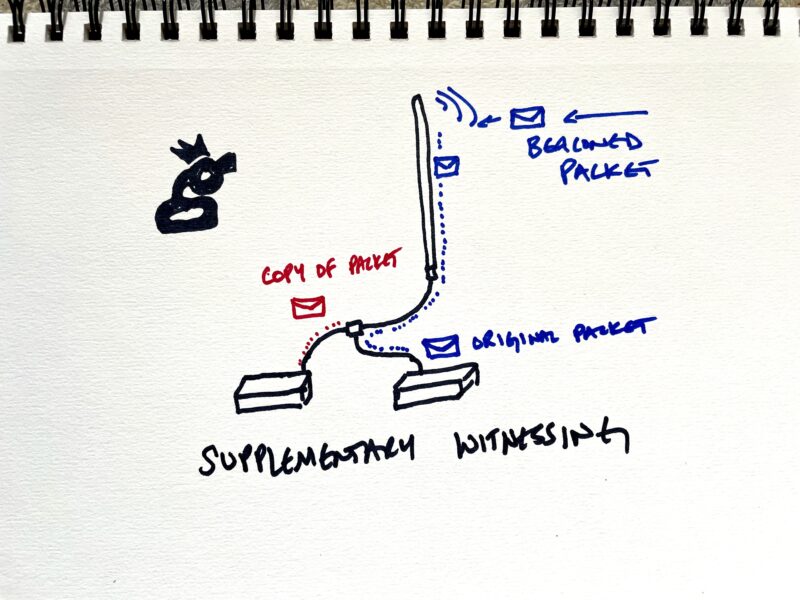 BEACONED
PACKET
COPY OF PACKET
ORIGINAL PACKET
SUPPLEMENTARY WITNESSING